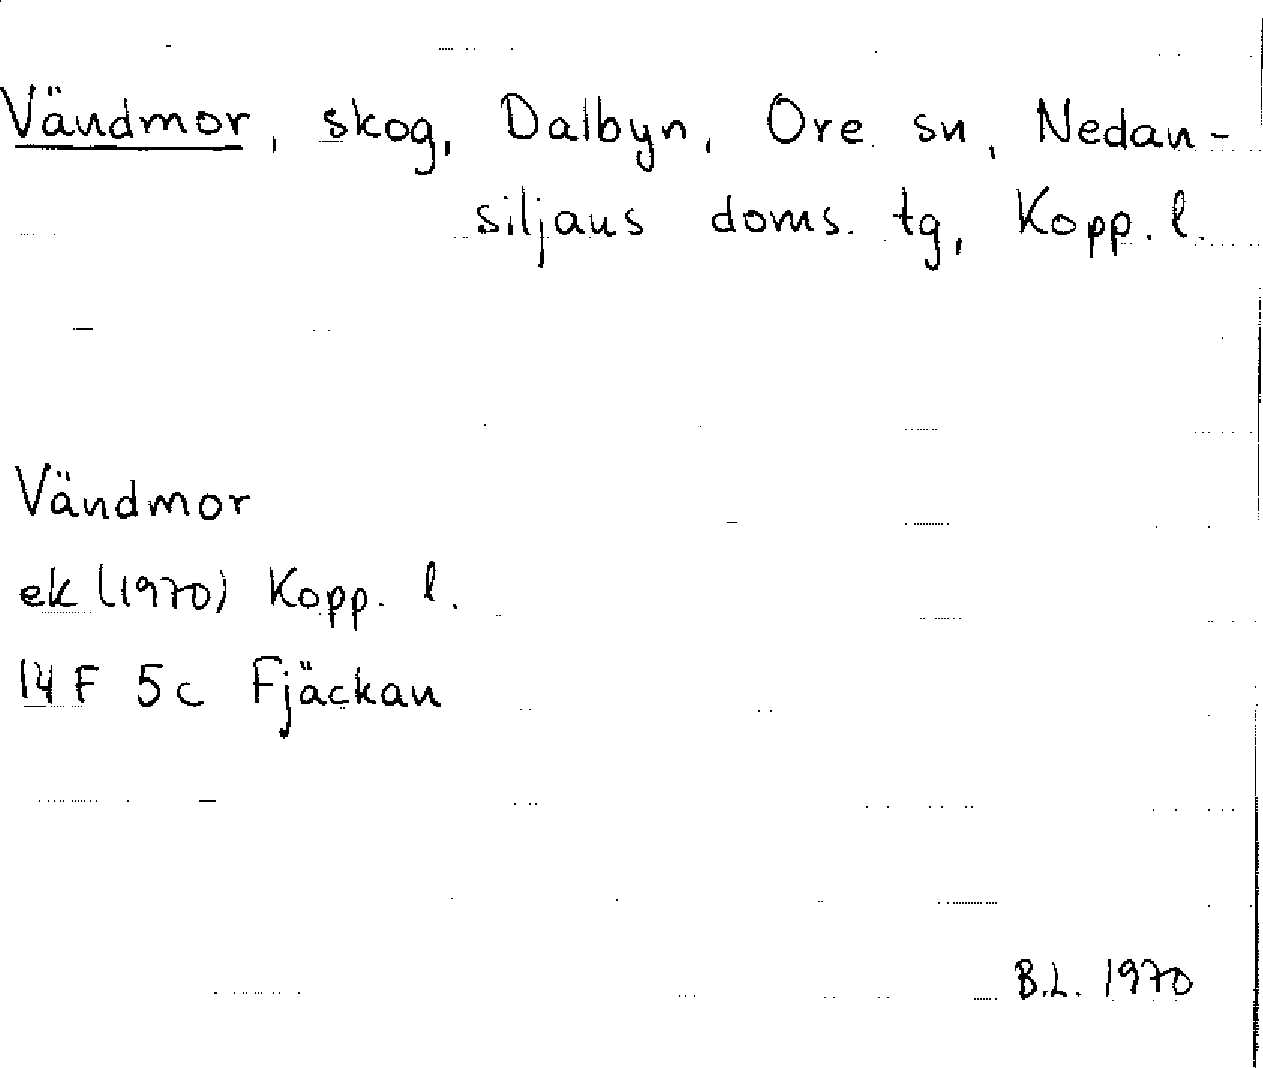 Vändmor, skog, Dalbyn, Ore sn, Nedan-
siljans doms. tg, Kopp. l.
Vändmor
ek (1970) Kopp. l.
14 F 5c Fjäckan
B.L. 1970